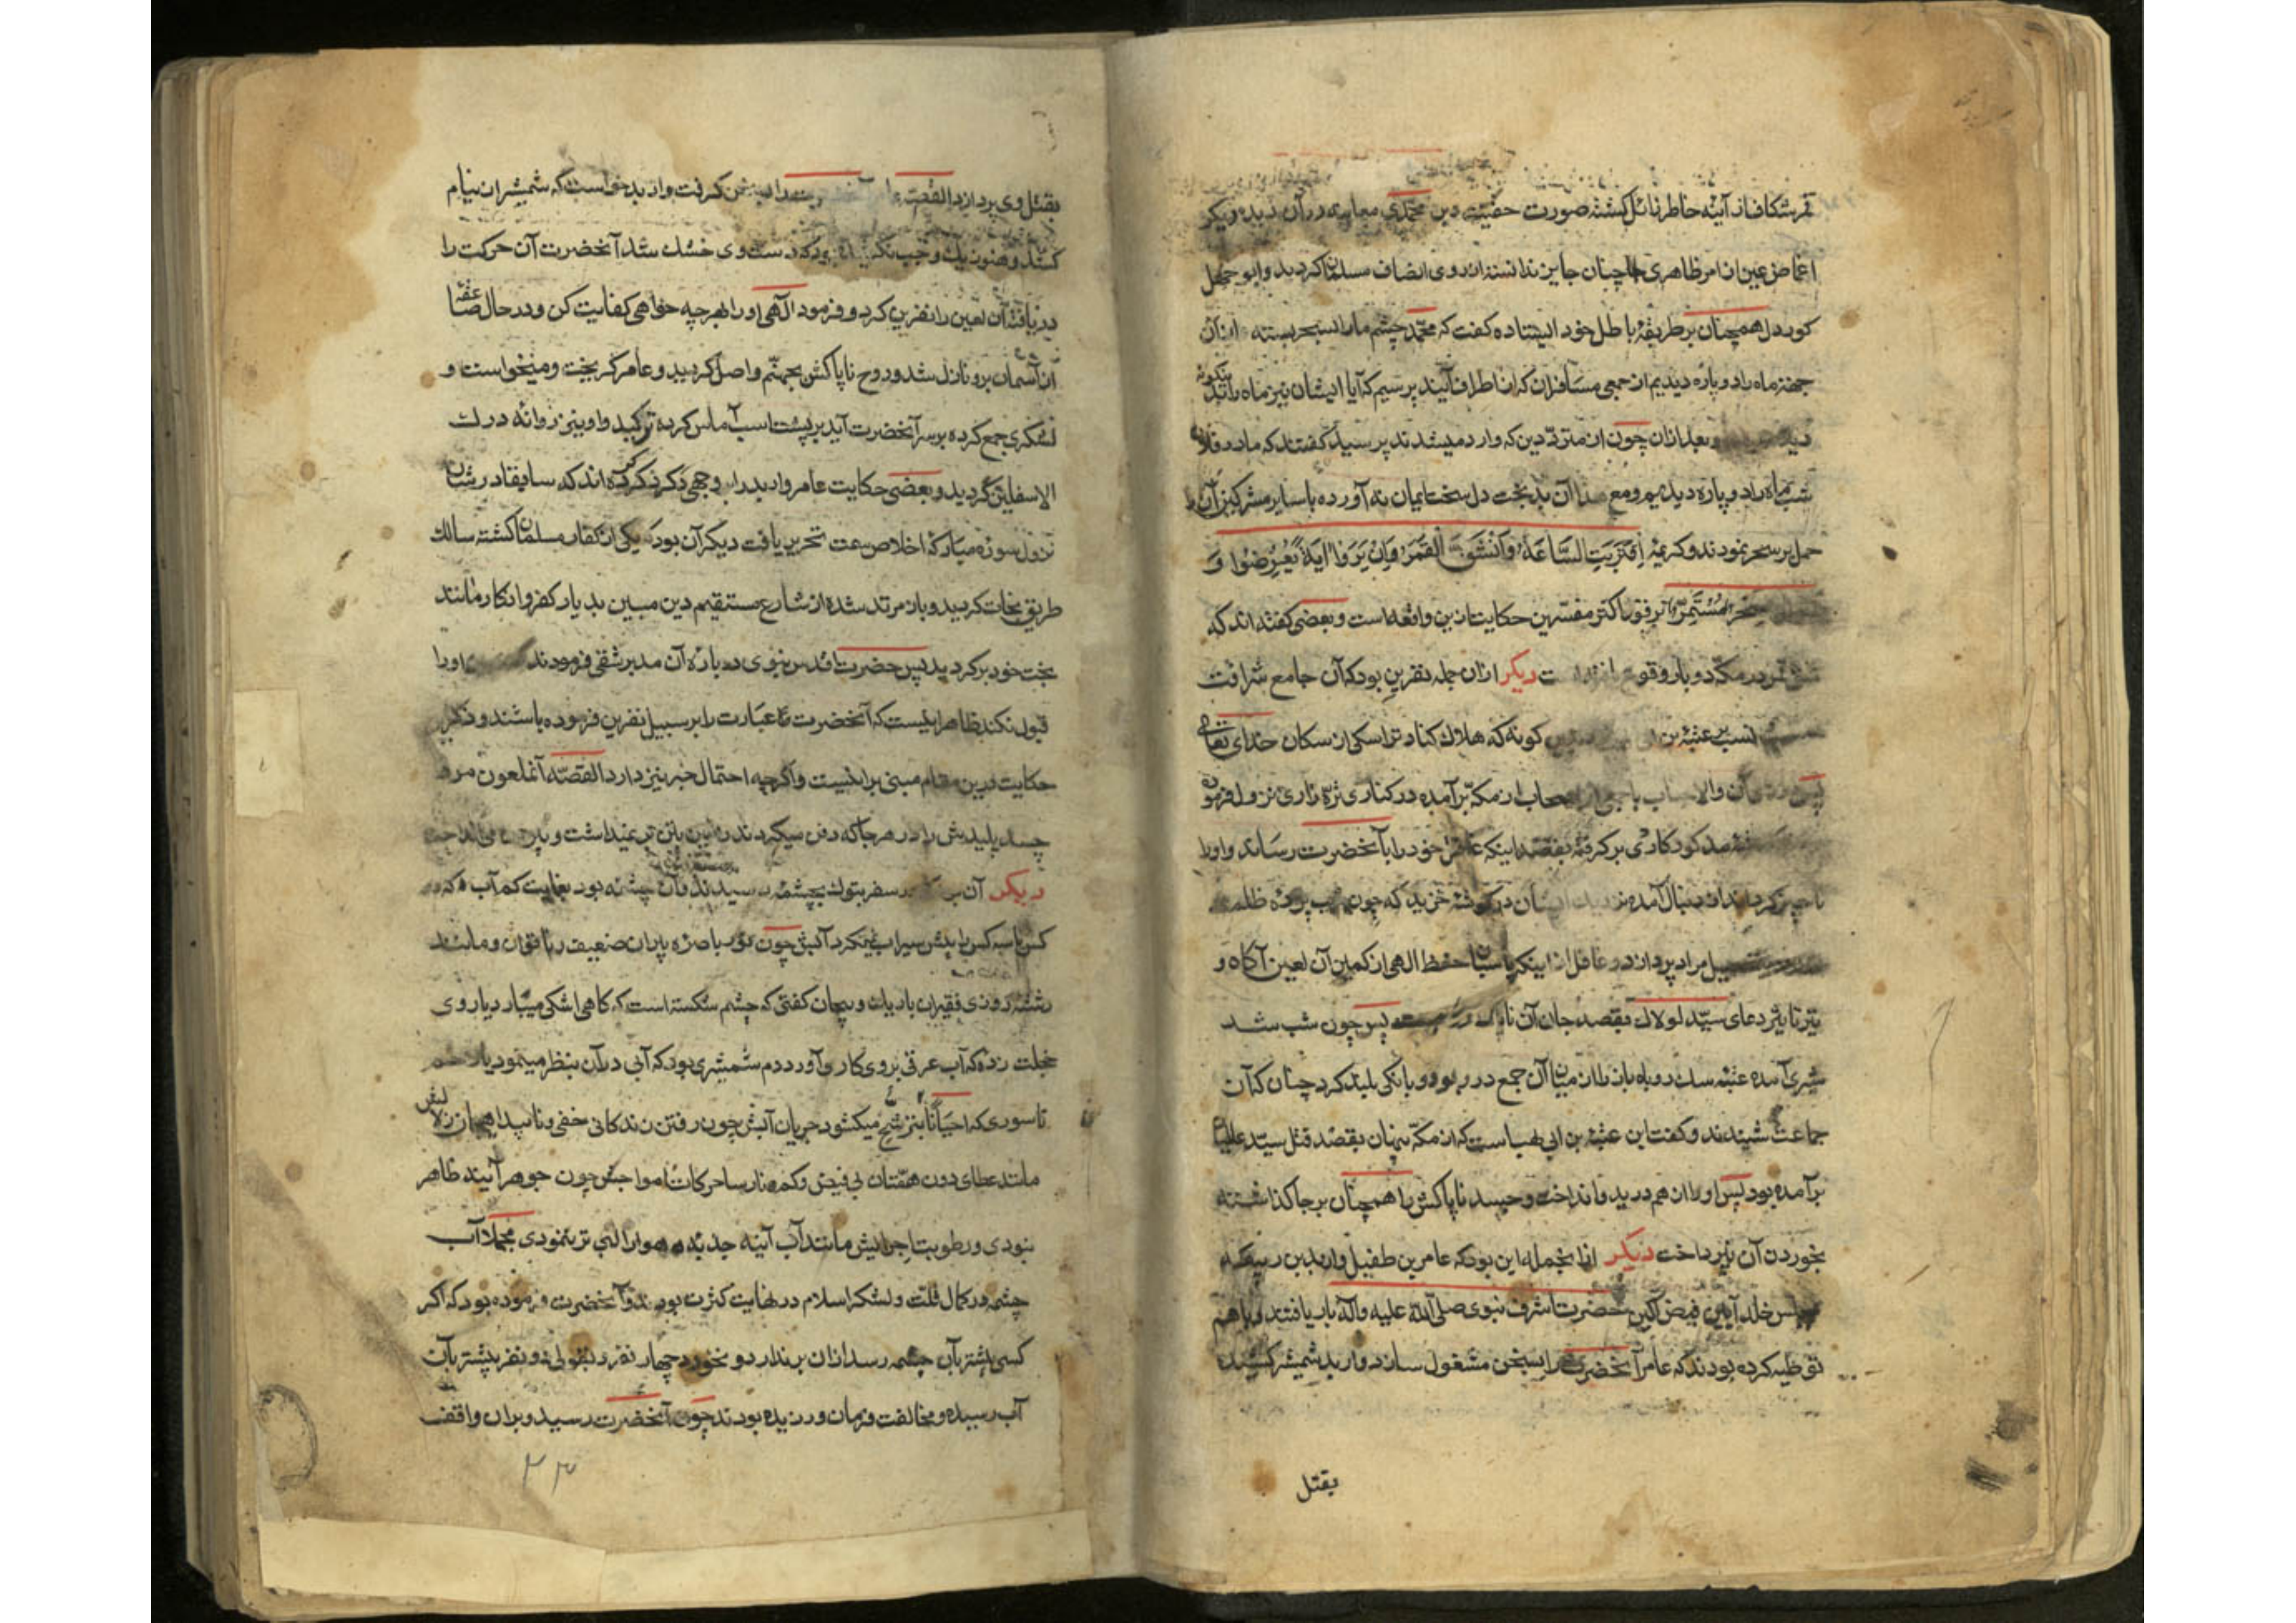 قمر شکاف از آینه خاطر زائل کشته صورت حقیت دین محمدی معاینه در آن دید و دیکر
اغماض عین از امر ظاهری جایز ندانسته از روی انصاف مسلمان کردید و ابو جهل
کوردل همچنان بر طریقهٔ باطل خود ایستاده کفت که محمد چشم ما را بسحر بسته از آن
جهة ماه را دوپاره دیدیم از جمعی مسافران که از اطراف آیند پرسیم که آیا ایشان نیز ماه را بدینکونه
و بعد از آن چون از مترددین که وارد میشدند پرسید کفتند که ما در فلان
شب ماه را دوپاره دیدیم و مع هذا آن بدبخت دل سخت ایمان نه آورده با سایر مشرکین آن را
حمل بر سحر نمودند و کریمهٔ اِقْتَرَبَتِ السَّاعَةُ وَانْشَقَّ الْقَمَرُ وَاِنْ يَرَوْا اٰيَةً يُعْرِضُوا وَ
سِحْرٌ مُسْتَمِرٌّ بر وفق اکثر مفسرین حکایت ازین واقعه است و بعضی کفته اند که
شق قمر در مکه دو بار وقوع دیکر از آن جمله نفرین بود که آن جامع شرافت
نسب بر عتبه بن کونه که هلاک کناد ترا سکی از سکان خدای تعالی
پس و الا با جمعی از اصحاب از مکه برآمده در کناری نزول فرمود
مذکور کاردی بر کرفته بقصد اینکه خود را بآنحضرت رساند و او را
ناچیز کرداند از دنبال آمده نزدیک ایشان در کوشهٔ خزید که چون شب پردهٔ
مراد پردازد و غافل از اینکه پاسبان حفظ الهی از کمین آن لعین آکاه و
تیر تاثیر دعای سید لولاک بقصد جان آن ناپاک پس چون شب شد
شیری آمده عتبه را از میان آن جمع در ربود و بانکی بلند کرد چنان که آن
جماعت شنیدند و کفت این عتبه بن ابی لهب است که از مکه پنهان بقصد قتل سید علیه
برآمده بود پس او را از هم درید و انداخت و جسد ناپاکش را همچنان بر جا کذاشته
بخوردن آن نپرداخت دیکر از آنجمله این بود که عامر بن طفیل و اربد بن ربیعه
خلد آیین فیض آکین حضرت اشرف نبوی صلی الله علیه و آله باریافتند و با هم
توطیه کرده بودند که عامر آنحضرت را بسخن مشغول سازد و اربد شمشیر کشیده
بقتل
بقتل وی پردازد القصه عامر آنحضرت را بسخن کرفت و اربد خواست که شمشیر از نیام
کشد و هنوز یک وجب نکشیده بود که دست وی خشک شد آنحضرت آن حرکت را
دریافته آن لعین را نفرین کرد و فرمود الهی او را بهر چه خواهی کفایت کن و در حال صاعقه
از آسمان برو نازل شد و روح ناپاکش بجهنم واصل کردید و عامر کریخت و میخواست و
لشکری جمع کرده بر سر آنحضرت آید بر پشت اسب آماس کرده ترکید و او نیز روانه درک
الاسفلین کردید و بعضی حکایت عامر و اربد را وجهی ذکر کرده اند که سابقا در شان
نزول سورهٔ مبارکهٔ اخلاص سمت تحریر یافت دیکر آن بود که یکی از کفار مسلمان کشته سالک
طریق نجات کردید و باز مرتد شده از شارع مستقیم دین مبین بدیار کفر و انکار مانند
بخت خود برکردید پس حضرت اقدس نبوی در بارهٔ آن مدبر شقی فرمودند او را
قبول نکند ظاهرا اینست که آنحضرت این عبارت را بر سبیل نفرین فرموده باشند و ذکر
حکایت درین مقام مبنی بر اینست و اکرچه احتمال خبر نیز دارد القصه آنملعون مرد
جسد پلیدش را در هر جا که دفن میکردند زمین تن بر نمیداشت و بیرون می انداخت
دیکر آن سفر بتوک بچشمه رسیدند و آن چشمه بود بغایت کم آب که
کس یا سه کس را بیش سیراب نمیکرد آبش چون نور باصرهٔ پیران ضعیف و ناتوان و مانند
رشته روزی فقیران باریک و پیچان کفتی که چشم شکسته است که کاهی اشکی میبارد یا روی
خجلت زده که آب عرقی بروی کار آورد دم شمشیری بود که آبی در آن بنظر مینمود یا زخم
ناسوری که احیانا بترشح میکشود جریان آبش چون رفتن زندکانی خفی و ناپیدا همچنان زلالش
مانند عطای دون همتان بی فیض و کم و نارسا حرکات امواجش چون جوهر آیینه ظاهر
نبودی و رطوبت اجزایش مانند آب آینه جذبه هوا را لبی تر ننمودی مجملا آب
چشمه در کمال قلت و لشکر اسلام در نهایت کثرت بودند و آنحضرت فرموده بود که اکر
کسی پیشتر بآن چشمه رسد از آن برندارد و نخورد چهار نفر و بقولی دو نفر پیشتر بآن
آب رسیده و مخالفت فرمان ورزیده بودند چون آنحضرت رسید و بر آن واقف
۲۳